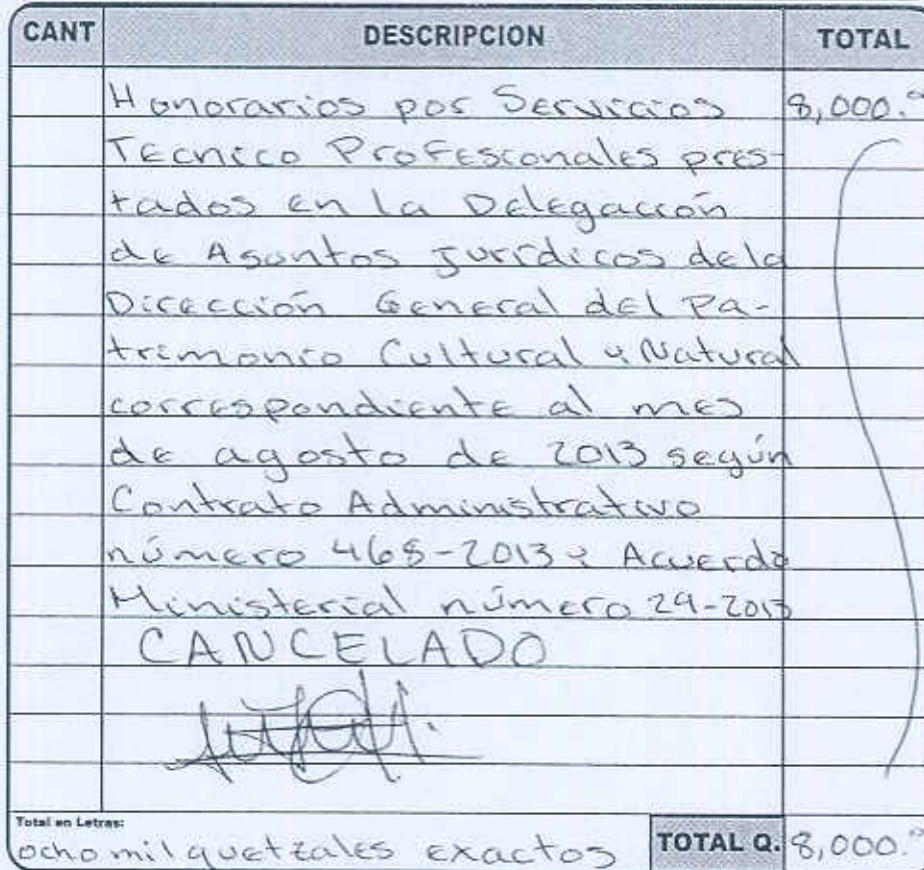 CANT DESCRIPCION TOTAL
Honorarios por Servicios 8,000.
Tecnico Profesionales pres-
tados en la Delegación
de Asuntos jurídicos de la
Dirección General del Pa-
trimonio Cultural y Natural
correspondiente al mes
de agosto de 2013 según
Contrato Administrativo
número 468-2013 y Acuerdo
Ministerial número 29-2013
CANCELADO
Total en Letras:
ocho mil quetzales exactos TOTAL Q. 8,000.